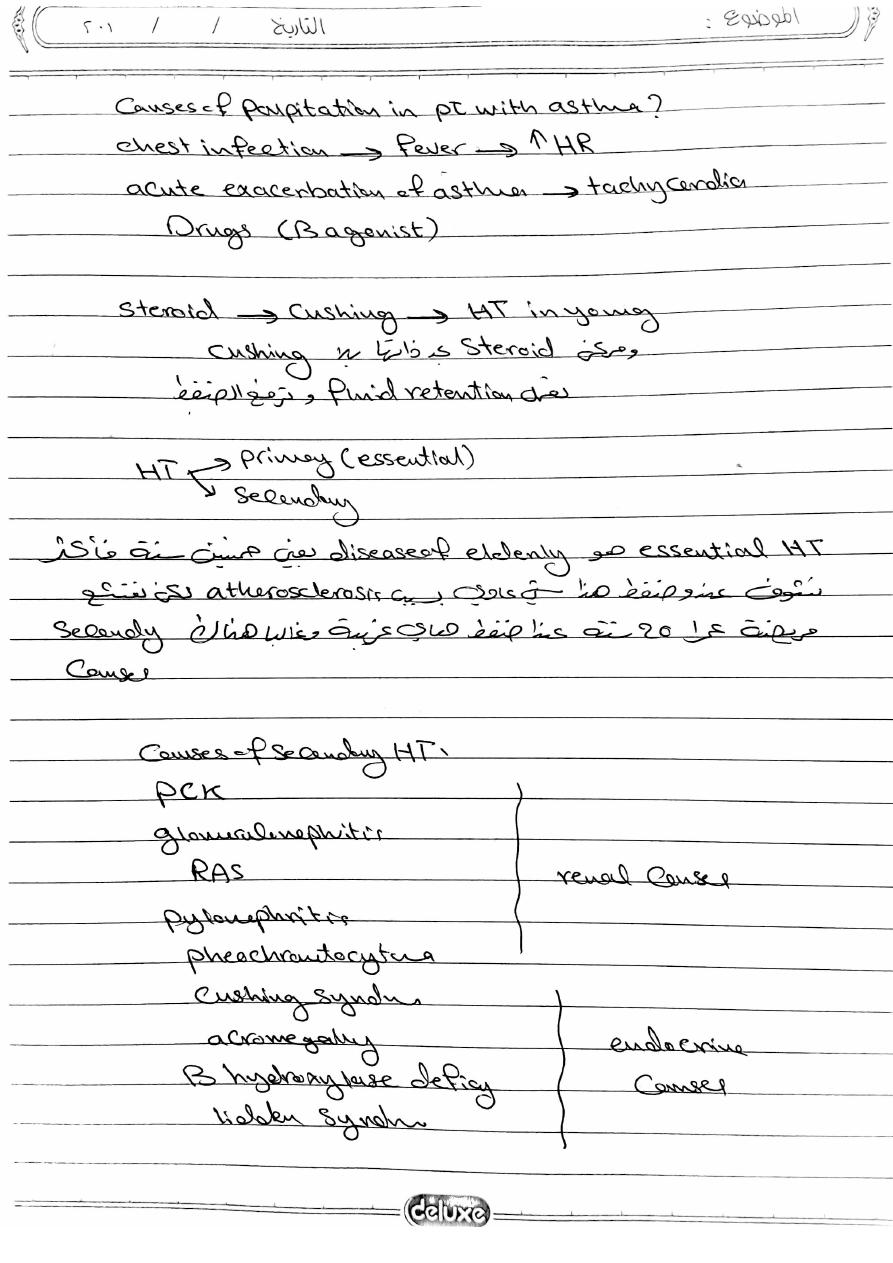 الموضوع :
التاريخ / / ٢٠١
Causes of palpitation in pt with asthma?
chest infection → fever → ↑ HR
acute exacerbation of asthma → tachycardia
Drugs (B agonist)
Steroid → Cushing → HT in young
وممكن Steroid بلا Cushing
تعمل fluid retention وترفع الضغط
HT → primary (essential)
→ Secondary
essential HT هو disease of elderly يعني خمسين سنة فأكثر
نشوف عندو ضغط هنا شي عادي بسبب atherosclerosis لكن
مريضة عمرا 20 سنة عندا ضغط هاي غريبة وغالبا هناك Secondy
Causes
Causes of Secondary HT:
PCK
glomerulonephritis
RAS
renal Causes
pylonephritis
pheochromtocytma
Cushing Syndro
acromegally
endocrine
B hydroxylase deficy
Causes
liddle Syndro
deluxe